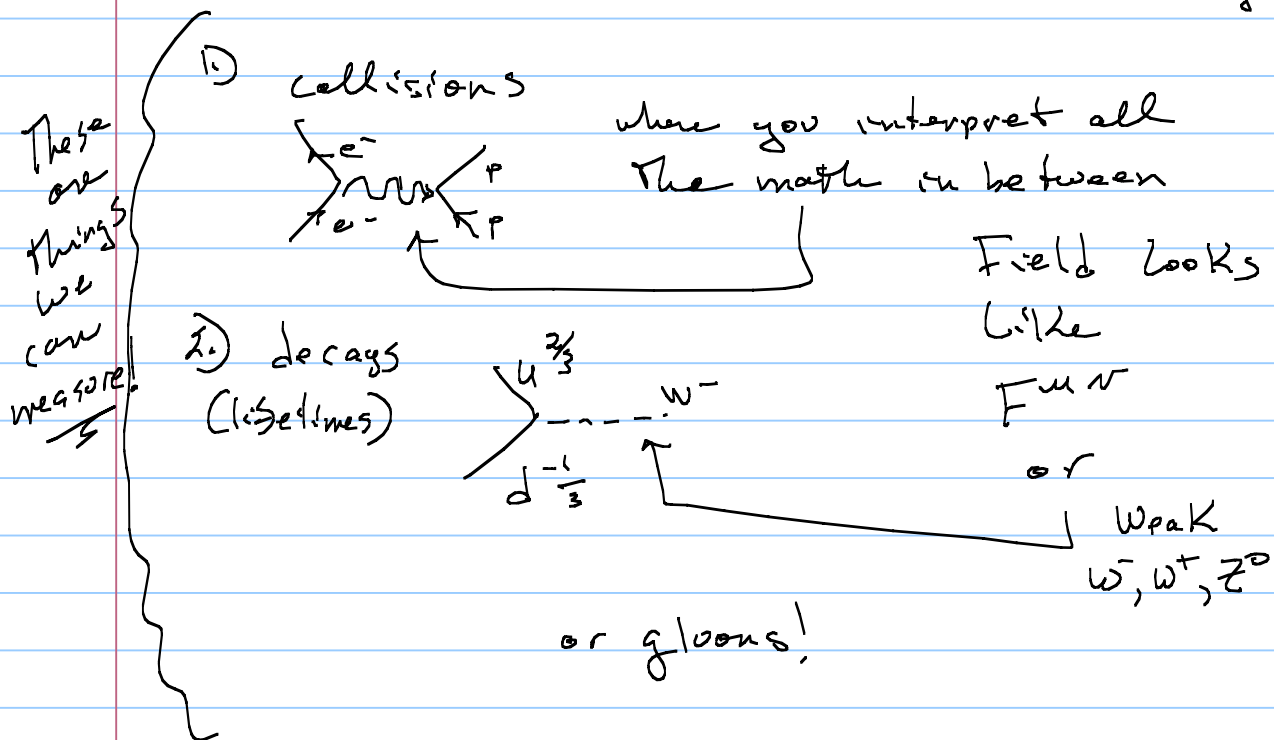 These
are
things
we
can
measure!
1.) collisions
e-
e-
p
p
where you interpret all
the math in between
Field looks
like
F^μν
or
Weak
W-, W+, Z0
2.) decays
(lifetimes)
u 2/3
d -1/3
W-
or gluons!